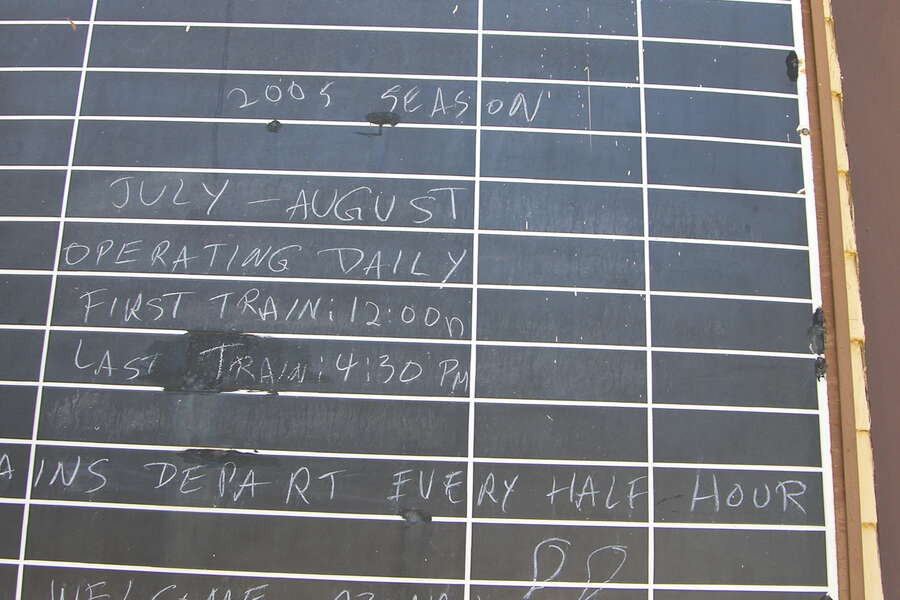 2005 SEASON
JULY - AUGUST
OPERATING DAILY
FIRST TRAIN: 12:00n
LAST TRAIN: 4:30 PM
AINS DEPART EVERY HALF HOUR
WELCOME